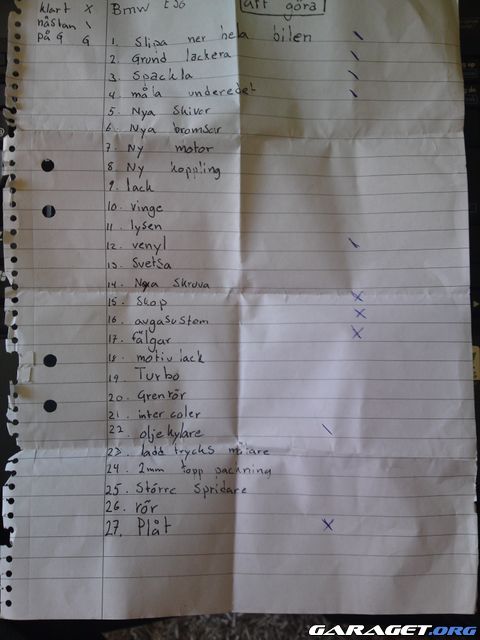 klart X Bmw E36 att göra
nästan \
på G G
1. Slipa ner hela bilen \
2. Grund lackera \
3. Spackla \
4. måla underedet \
5. Nya Skivor
6. Nya bromsar
7. Ny motor
8. Ny koppling
9. lack
10. vinge
11. lysen
12. venyl \
13. Svetsa
14. Nya Skruva
15. Skop X
16. avgasustom X
17. fälgar X
18. motiv lack
19. Turbo
20. Grenrör
21. inter coler
22. olje kylare \
23. ladd trycks mätare
24. 2mm topp packning
25. Större Spridare
26. rör
27. Plåt X
GARAGET.ORG